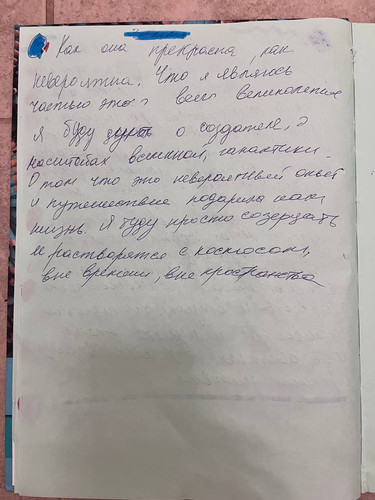 Как она прекрасна, как
невероятна. Что я являюсь
частью этого всего великолепия
Я буду о создателе, о
масштабах вселенной, галактики.
О том что это невероятный опыт
и путешествие подарила нам
жизнь. Я буду просто созерцать
и растворятся с космосом,
вне времени, вне пространства